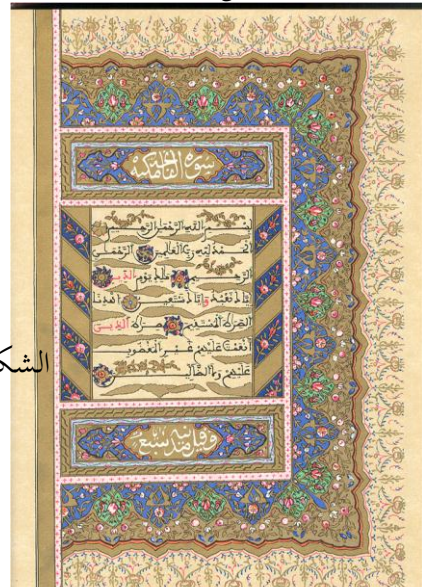 سورة الفاتحة مكية
بسم الله الرحمن الرحيم
الحمد لله رب العلمين الرحمن
الرحيم ملك يوم الدين
إياك نعبد وإياك نستعين اهدنا
الصراط المستقيم صراط الذين
أنعمت عليهم غير المغضوب
عليهم ولا الضالين
وقيل مدنية سبع